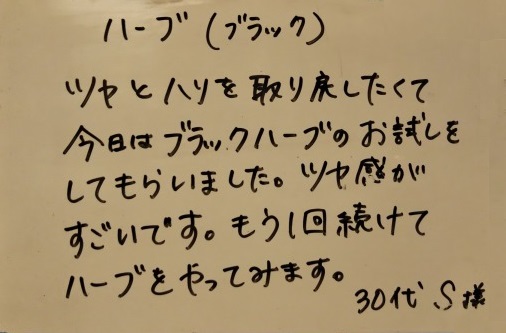 ハーブ(ブラック)
ツヤとハリを取り戻したくて
今日はブラックハーブのお試しを
してもらいました。ツヤ感が
すごいです。もう1回続けて
ハーブをやってみます。
30代 S様